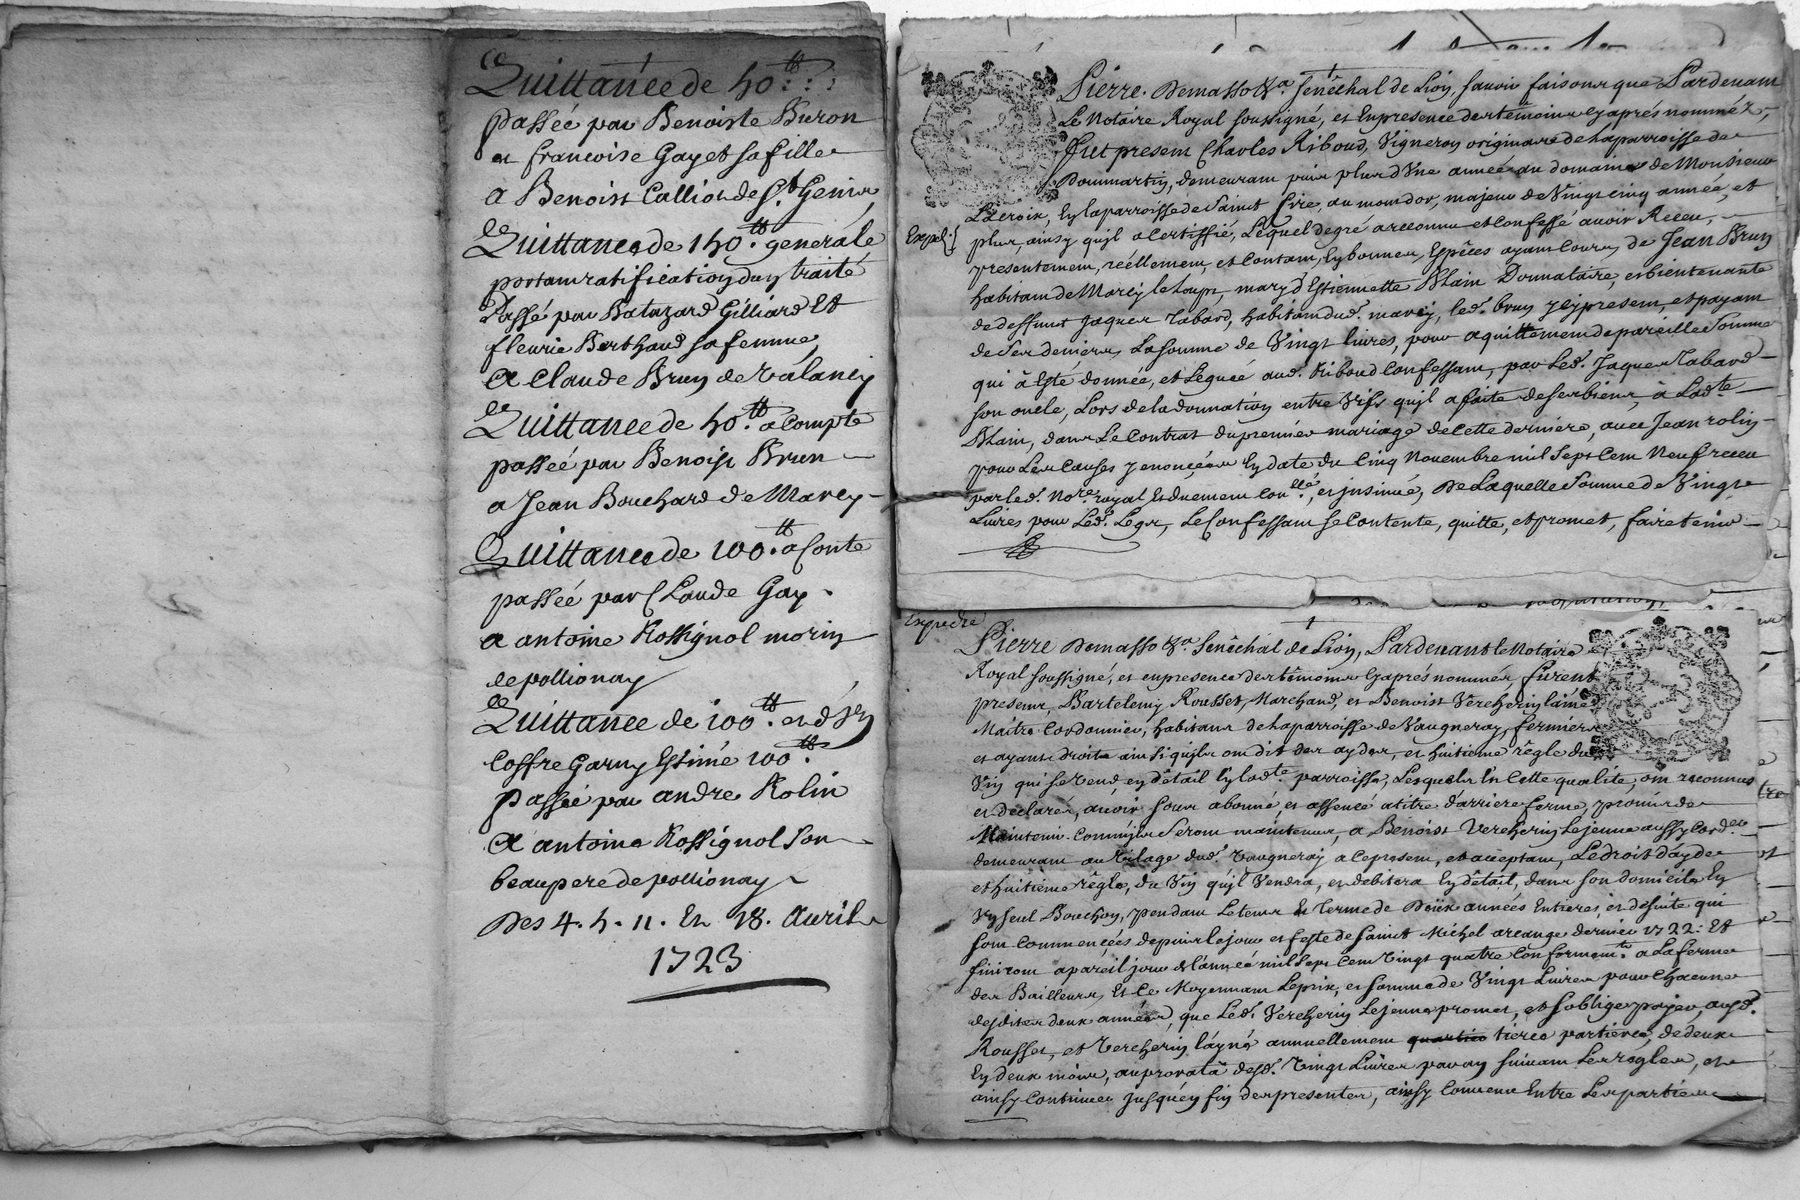 Quittance de 50.tt
passée par Benoiste Buron
et francoise Gayet sa fille
a Benoist Calliot de St. Genis
Quittance de 150.tt generale
portant ratification dun traité
Passé par Batazard Gilliard Et
fleurie Berthaud sa femme
A Claude Brun de Valancy
Quittance de 50.tt a compte
passée par Benoist Brun
a Jean Bouchard de Marcy
Quittance de 100.tt a Conte
passée par Claude Gay
a antoine Rossignol morin
de pollionay
Quittance de 100.tt et d'un
Coffre Garny Estimé 100.tt
passée par andre Rolin
A antoine Rossignol son
beaupere de pollionay
Des 4. 5. 11. Et 18. Auril
1723
Pierre Demasso &a. Senêchal de Lion, sauoir faisons que Pardeuant
Le Notaire Royal soussigné, et En presence des têmoins Cy aprés nommés,
Fut present Charles Riboud, Vigneron originaire de la parroisse de
Dommartin, demeurant puis plus d'Vne année au domaine de Monsieur
Lacroix, En la parroisse de Saint Cire, au mondor, majeur de Vingt cinq année, et
plus, ainsy qu'jl a Certiffié, Lequel de gré a reconnu et Confessé auoir Receu,
presentement, réellement, et Contant, En bonnes Espêces ayant Cours, de Jean Brun
habitant de Marcy le Loup, mary d'Estiennette Blain Donnataire, et bientenante
de deffunt Jaques Tabard, habitant dud. marcy, led. brun jcy present, et payant
de Ses deniers, La somme de Vingt Liures, pour aquittement de pareille Somme
qui à Esté donnée, et Leguée aud. Riboud Confessant, par Led. Jaques Tabard
son oncle, Lors de la donnation entre Vifs qu'jl a faite de ses biens, à Ladte.
Blain, dans Le Contrat du premier mariage de Cette derniére, auec Jean rolin
pour Les Causes y enoncées En date du Cinq Nouembre mil Sept Cent Neuf receu
par led. Nore. royal Et duement Conllé, et jnsinué, De Laquelle Somme de Vingt
Liures pour Led. Legs, Le Confessant Se Contente, quitte, et promet, faire tenir
Expedié
Pierre Demasso &a. Senêchal de Lion, Pardeuant le Notaire
Royal soussigné, et en presence des têmoins Cy aprés nommés, furent
presens, Bartelemy Rousset, Marchand, et Benoist Vercherin lainé
Maitre Cordonnier, habitans de la parroisse de Vaugneray, fermiers
et ayants droits ainsi qu'jls ont dit des aydes, et huitieme règle du
Vin qui se Vend, en dêtail En ladte. parroisse, Lesquels En Cette qualité, ont reconnus
et declarés, auoir Sous abonné, et assencé a titre d'arriere ferme, promis de
Maintenir Comm'jls Seront maintenus, a Benoist Vercherin Lejeune aussy Cordier
demeurant au Vilage dud. Vaugneray a Ce present, et acceptant, Le droit d'aydes
et huitieme règle, du Vin qu'jl Vendra, et debitera En dêtail, dans son domicile En
Vn Seul Bouchon, pendant Le tems et Terme de Deux années Entieres, et de suite qui
sont Commencées depuis Le jour et feste de Saint Michel arcange dernier 1722: Et
finiront a pareil jour de l'année mil Sept Cent Vingt quatre Conformemt. a La ferme
des Bailleurs, Et Ce Moyennant Le prix, et somme de Vingt Liures pour chacune
desdites deux années, que Led. Vercherin Lejeune promet, et s'oblige payer, ausd.
Rousset, et Vercherin l'ayné annuellement quartier tierce partie, de deux
En deux mois, au prorata desd. Vingt Liures par an Suiuant Les règles, et
ainsy Continuer jusqu'en fin des presentes, ainsy Conuenu Entre Les parties